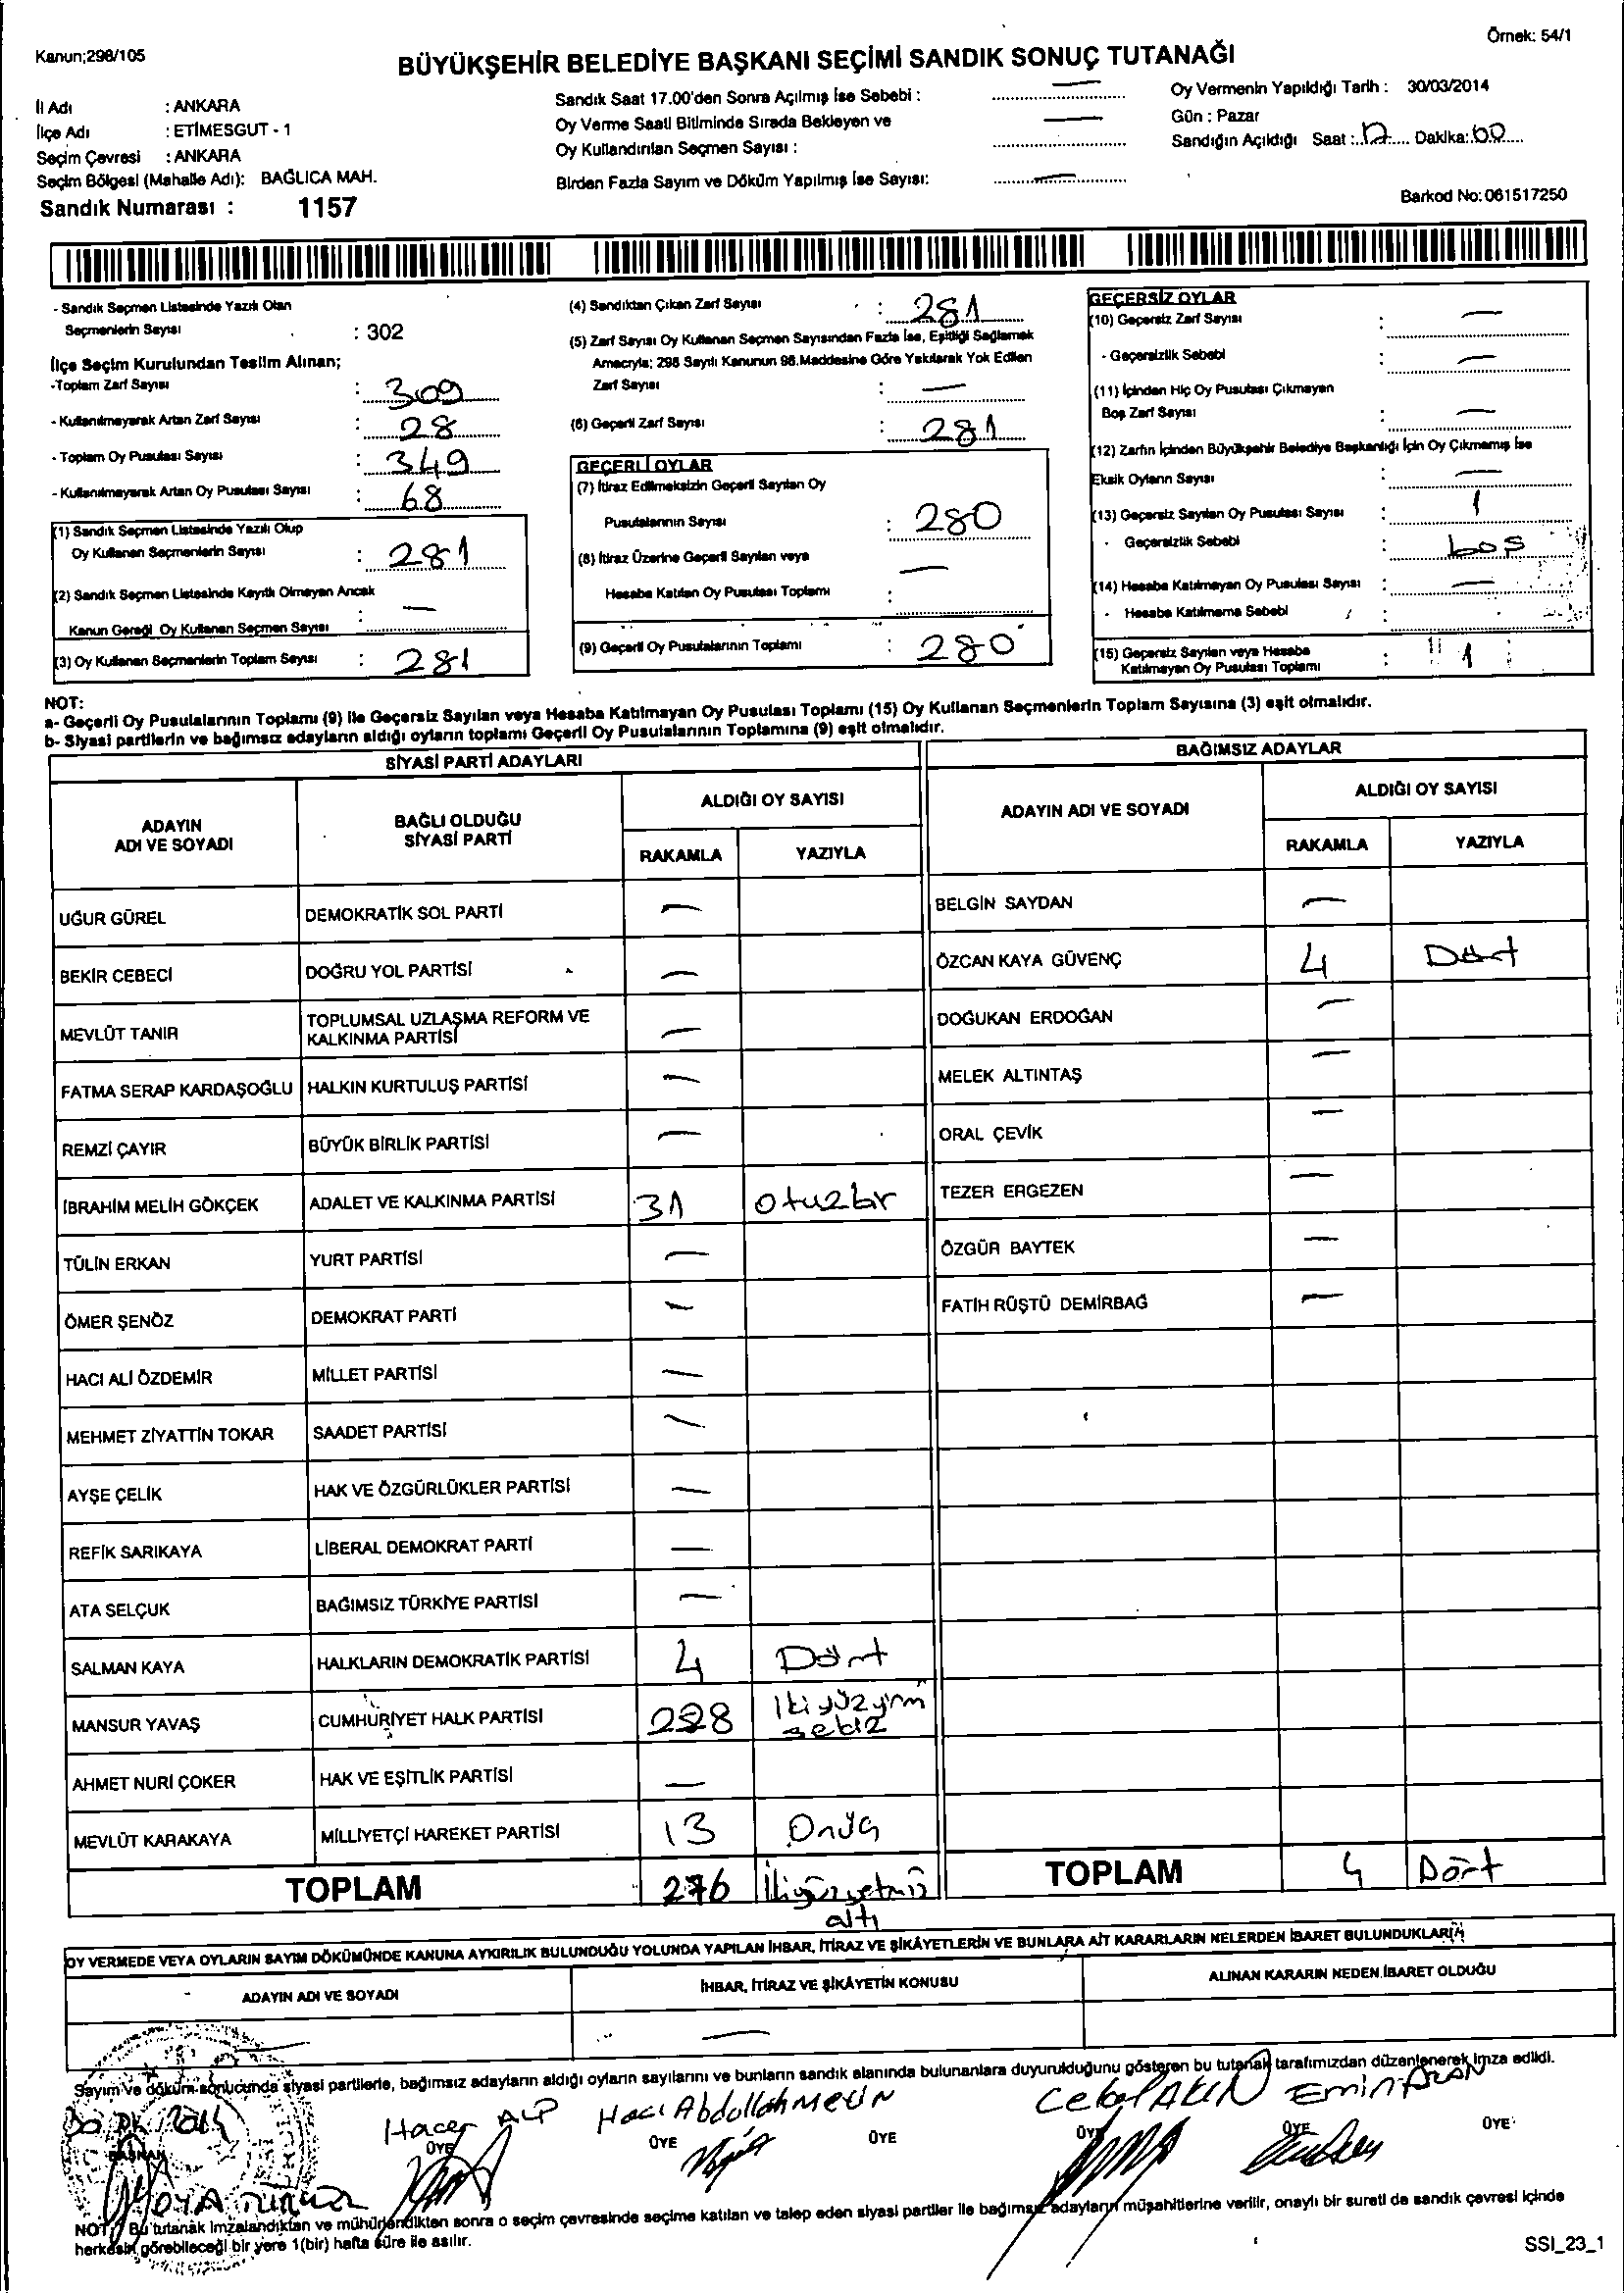 Kanun;298/105
Örnek: 54/1
BÜYÜKŞEHİR BELEDİYE BAŞKANI SEÇİMİ SANDIK SONUÇ TUTANAĞI
İl Adı : ANKARA
İlçe Adı : ETİMESGUT - 1
Seçim Çevresi : ANKARA
Seçim Bölgesi (Mahalle Adı): BAĞLICA MAH.
Sandık Numarası : 1157
Sandık Saat 17.00'den Sonra Açılmış İse Sebebi : —
Oy Verme Saati Bitiminde Sırada Bekleyen ve
Oy Kullandırılan Seçmen Sayısı : —
Birden Fazla Sayım ve Döküm Yapılmış İse Sayısı: —
Oy Vermenin Yapıldığı Tarih : 30/03/2014
Gün : Pazar
Sandığın Açıldığı Saat :..17.... Dakika:.00....
Barkod No: 061517250
- Sandık Seçmen Listesinde Yazılı Olan
Seçmenlerin Sayısı : 302
İlçe Seçim Kurulundan Teslim Alınan;
-Toplam Zarf Sayısı : 309
- Kullanılmayarak Artan Zarf Sayısı : 28
- Toplam Oy Pusulası Sayısı : 349
- Kullanılmayarak Artan Oy Pusulası Sayısı : 68
(1) Sandık Seçmen Listesinde Yazılı Olup
Oy Kullanan Seçmenlerin Sayısı : 281
(2) Sandık Seçmen Listesinde Kayıtlı Olmayan Ancak
Kanun Gereği Oy Kullanan Seçmen Sayısı : —
(3) Oy Kullanan Seçmenlerin Toplam Sayısı : 281
(4) Sandıktan Çıkan Zarf Sayısı : 281
(5) Zarf Sayısı Oy Kullanan Seçmen Sayısından Fazla İse, Eşitliği Sağlamak
Amacıyla; 298 Sayılı Kanunun 98.Maddesine Göre Yakılarak Yok Edilen
Zarf Sayısı : —
(6) Geçerli Zarf Sayısı : 281
GEÇERLİ OYLAR
(7) İtiraz Edilmeksizin Geçerli Sayılan Oy
Pusulalarının Sayısı : 280
(8) İtiraz Üzerine Geçerli Sayılan veya
Hesaba Katılan Oy Pusulası Toplamı : —
(9) Geçerli Oy Pusulalarının Toplamı : 280
GEÇERSİZ OYLAR
(10) Geçersiz Zarf Sayısı : —
- Geçersizlik Sebebi : —
(11) İçinden Hiç Oy Pusulası Çıkmayan
Boş Zarf Sayısı : —
(12) Zarfın İçinden Büyükşehir Belediye Başkanlığı İçin Oy Çıkmamış İse
Eksik Oyların Sayısı : —
(13) Geçersiz Sayılan Oy Pusulası Sayısı : 1
- Geçersizlik Sebebi : boş
(14) Hesaba Katılmayan Oy Pusulası Sayısı : —
- Hesaba Katılmama Sebebi :
(15) Geçersiz Sayılan veya Hesaba
Katılmayan Oy Pusulası Toplamı : 1
NOT:
a- Geçerli Oy Pusulalarının Toplamı (9) ile Geçersiz Sayılan veya Hesaba Katılmayan Oy Pusulası Toplamı (15) Oy Kullanan Seçmenlerin Toplam Sayısına (3) eşit olmalıdır.
b- Siyasi partilerin ve bağımsız adayların aldığı oyların toplamı Geçerli Oy Pusulalarının Toplamına (9) eşit olmalıdır.
SİYASİ PARTİ ADAYLARI
ADAYIN ADI VE SOYADI
BAĞLI OLDUĞU SİYASİ PARTİ
ALDIĞI OY SAYISI
RAKAMLA YAZIYLA
UĞUR GÜREL DEMOKRATİK SOL PARTİ —
BEKİR CEBECİ DOĞRU YOL PARTİSİ —
MEVLÜT TANIR TOPLUMSAL UZLAŞMA REFORM VE KALKINMA PARTİSİ —
FATMA SERAP KARDAŞOĞLU HALKIN KURTULUŞ PARTİSİ —
REMZİ ÇAYIR BÜYÜK BİRLİK PARTİSİ —
İBRAHİM MELİH GÖKÇEK ADALET VE KALKINMA PARTİSİ 31 otuzbir
TÜLİN ERKAN YURT PARTİSİ —
ÖMER ŞENÖZ DEMOKRAT PARTİ —
HACI ALİ ÖZDEMİR MİLLET PARTİSİ —
MEHMET ZİYATTİN TOKAR SAADET PARTİSİ —
AYŞE ÇELİK HAK VE ÖZGÜRLÜKLER PARTİSİ —
REFİK SARIKAYA LİBERAL DEMOKRAT PARTİ —
ATA SELÇUK BAĞIMSIZ TÜRKİYE PARTİSİ —
SALMAN KAYA HALKLARIN DEMOKRATİK PARTİSİ 4 Dört
MANSUR YAVAŞ CUMHURİYET HALK PARTİSİ 228 ikiyüzyirm sekiz
AHMET NURİ ÇOKER HAK VE EŞİTLİK PARTİSİ —
MEVLÜT KARAKAYA MİLLİYETÇİ HAREKET PARTİSİ 13 Onüç
TOPLAM 276 İkiyüzyetmiş altı
BAĞIMSIZ ADAYLAR
ADAYIN ADI VE SOYADI
ALDIĞI OY SAYISI
RAKAMLA YAZIYLA
BELGİN SAYDAN —
ÖZCAN KAYA GÜVENÇ 4 Dört
DOĞUKAN ERDOĞAN —
MELEK ALTINTAŞ —
ORAL ÇEVİK —
TEZER ERGEZEN —
ÖZGÜR BAYTEK —
FATİH RÜŞTÜ DEMİRBAĞ —
TOPLAM 4 Dört
OY VERMEDE VEYA OYLARIN SAYIM DÖKÜMÜNDE KANUNA AYKIRILIK BULUNDUĞU YOLUNDA YAPILAN İHBAR, İTİRAZ VE ŞİKÂYETLERİN VE BUNLARA AİT KARARLARIN NELERDEN İBARET BULUNDUKLARI
ADAYIN ADI VE SOYADI
İHBAR, İTİRAZ VE ŞİKÂYETİN KONUSU
ALINAN KARARIN NEDEN İBARET OLDUĞU
— —
Sayım ve döküm sonucunda siyasi partilerle, bağımsız adayların aldığı oyların sayılarını ve bunların sandık alanında bulunanlara duyurulduğunu gösteren bu tutanak tarafımızdan düzenlenerek imza edildi.
Hacer ALP Hacı Abdullah METİN Celal AKIN Emin ARLAN
BAŞKAN ÜYE ÜYE ÜYE ÜYE ÜYE ÜYE
NOT: Bu tutanak imzalandıktan ve mühürlendikten sonra o seçim çevresinde seçime katılan ve talep eden siyasi partiler ile bağımsız adayların müşahitlerine verilir, onaylı bir sureti de sandık çevresi içinde
herkesin görebileceği bir yere 1(bir) hafta süre ile asılır.
SSI_23_1